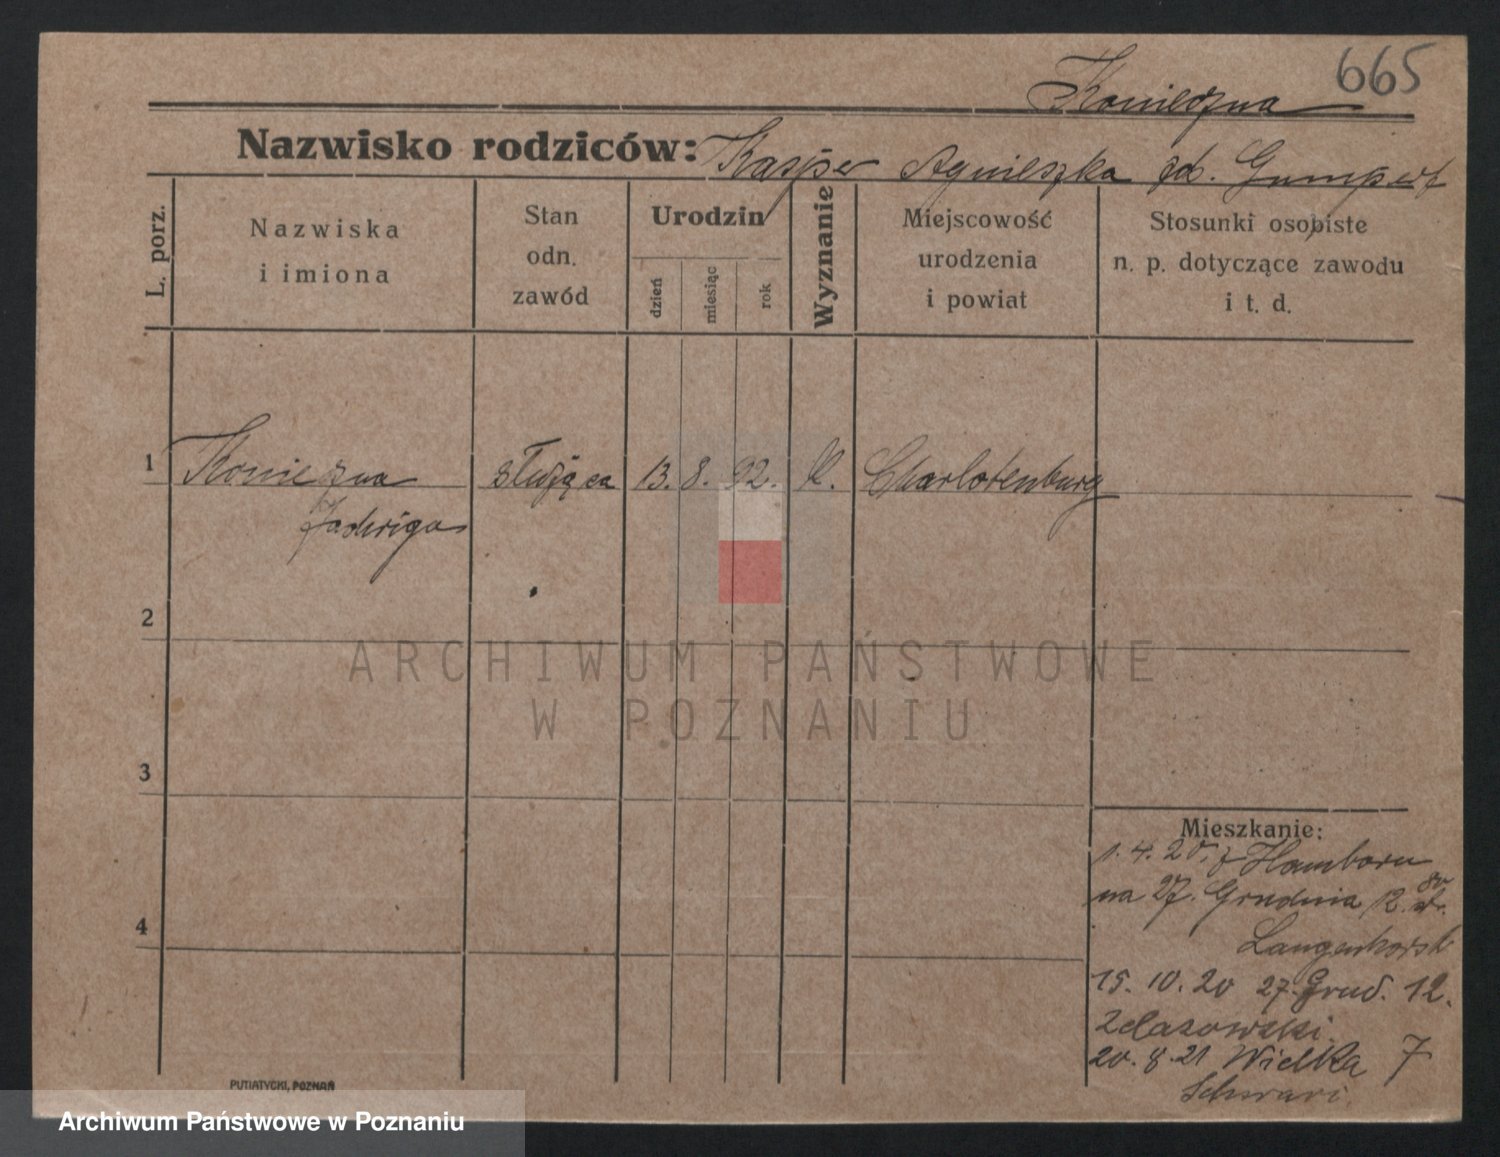 665
Konieczna
Nazwisko rodziców: Kasper Agnieszka zd. Gumpert
L. porz.
Nazwiska
i imiona
Stan
odn.
zawód
Urodzin
dzień
miesiąc
rok
Wyznanie
Miejscowość
urodzenia
i powiat
Stosunki osobiste
n. p. dotyczące zawodu
i t. d.
1 Konieczna służąca 13. 8. 92. K. Charlotenburg
Jadwiga
2
ARCHIWUM PAŃSTWOWE
W POZNANIU
3
Mieszkanie:
1. 4. 20. z Hamboru
na 27. Grudnia 12.
4
Langenhorst
15. 10. 20 27. Grud. 12.
Zelasowski
20. 8. 21 Wielka 7
PUTIATYCKI, POZNAŃ
Archiwum Państwowe w Poznaniu